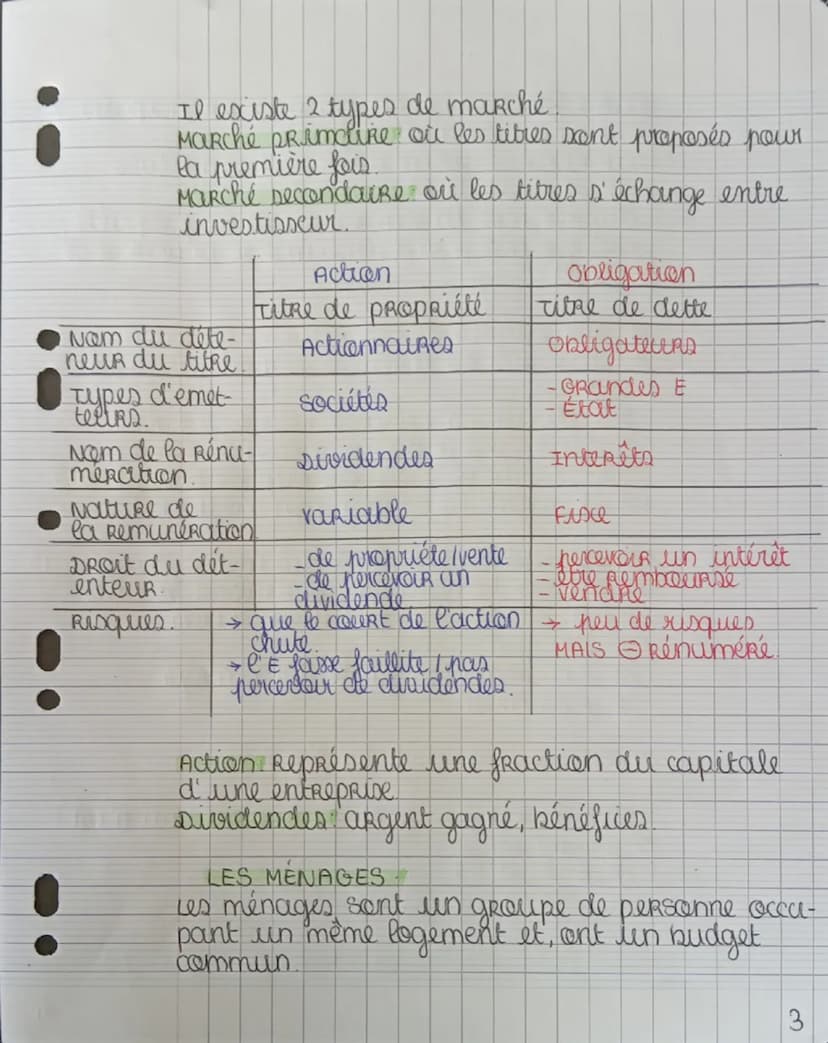 Il existe 2 types de marché.
Marché primaire : où les titres sont proposés pour
la première fois.
Marché secondaire : où les titres s'échange entre
investisseur.
Action
Obligation
Titre de propriété
Titre de dette
Nom du déte-
neur du titre
Actionnaires
Obligateurs
Types d'emet-
teurs.
Sociétés
- Grandes E
- État
Nom de la rénu-
mération.
Dividendes
Interêts
Nature de
la remunération
variable
Fixe
Droit du dét-
enteur
- de propriété/vente
- de percevoir un
dividende
- percevoir un intérêt
- être remboursé
- vendre
Risques.
→ que le court de l'action
chute.
→ l'E fasse faillite / pas
percevoir de dividendes.
→ peu de risques
MAIS ⊖ rénuméré.
Action : Représente une fraction du capitale
d'une entreprise
Dividendes : argent gagné, bénéfices.
LES MÉNAGES.
Les ménages sont un groupe de personne occu-
pant un même logement et, ont un budget
commun.
3